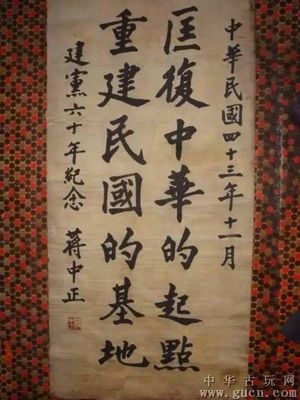 中華民國四十三年十一月
匡復中華的起點
重建民國的基地
建憲六十年紀念 蔣中正
中华古玩网
www.gucn.com